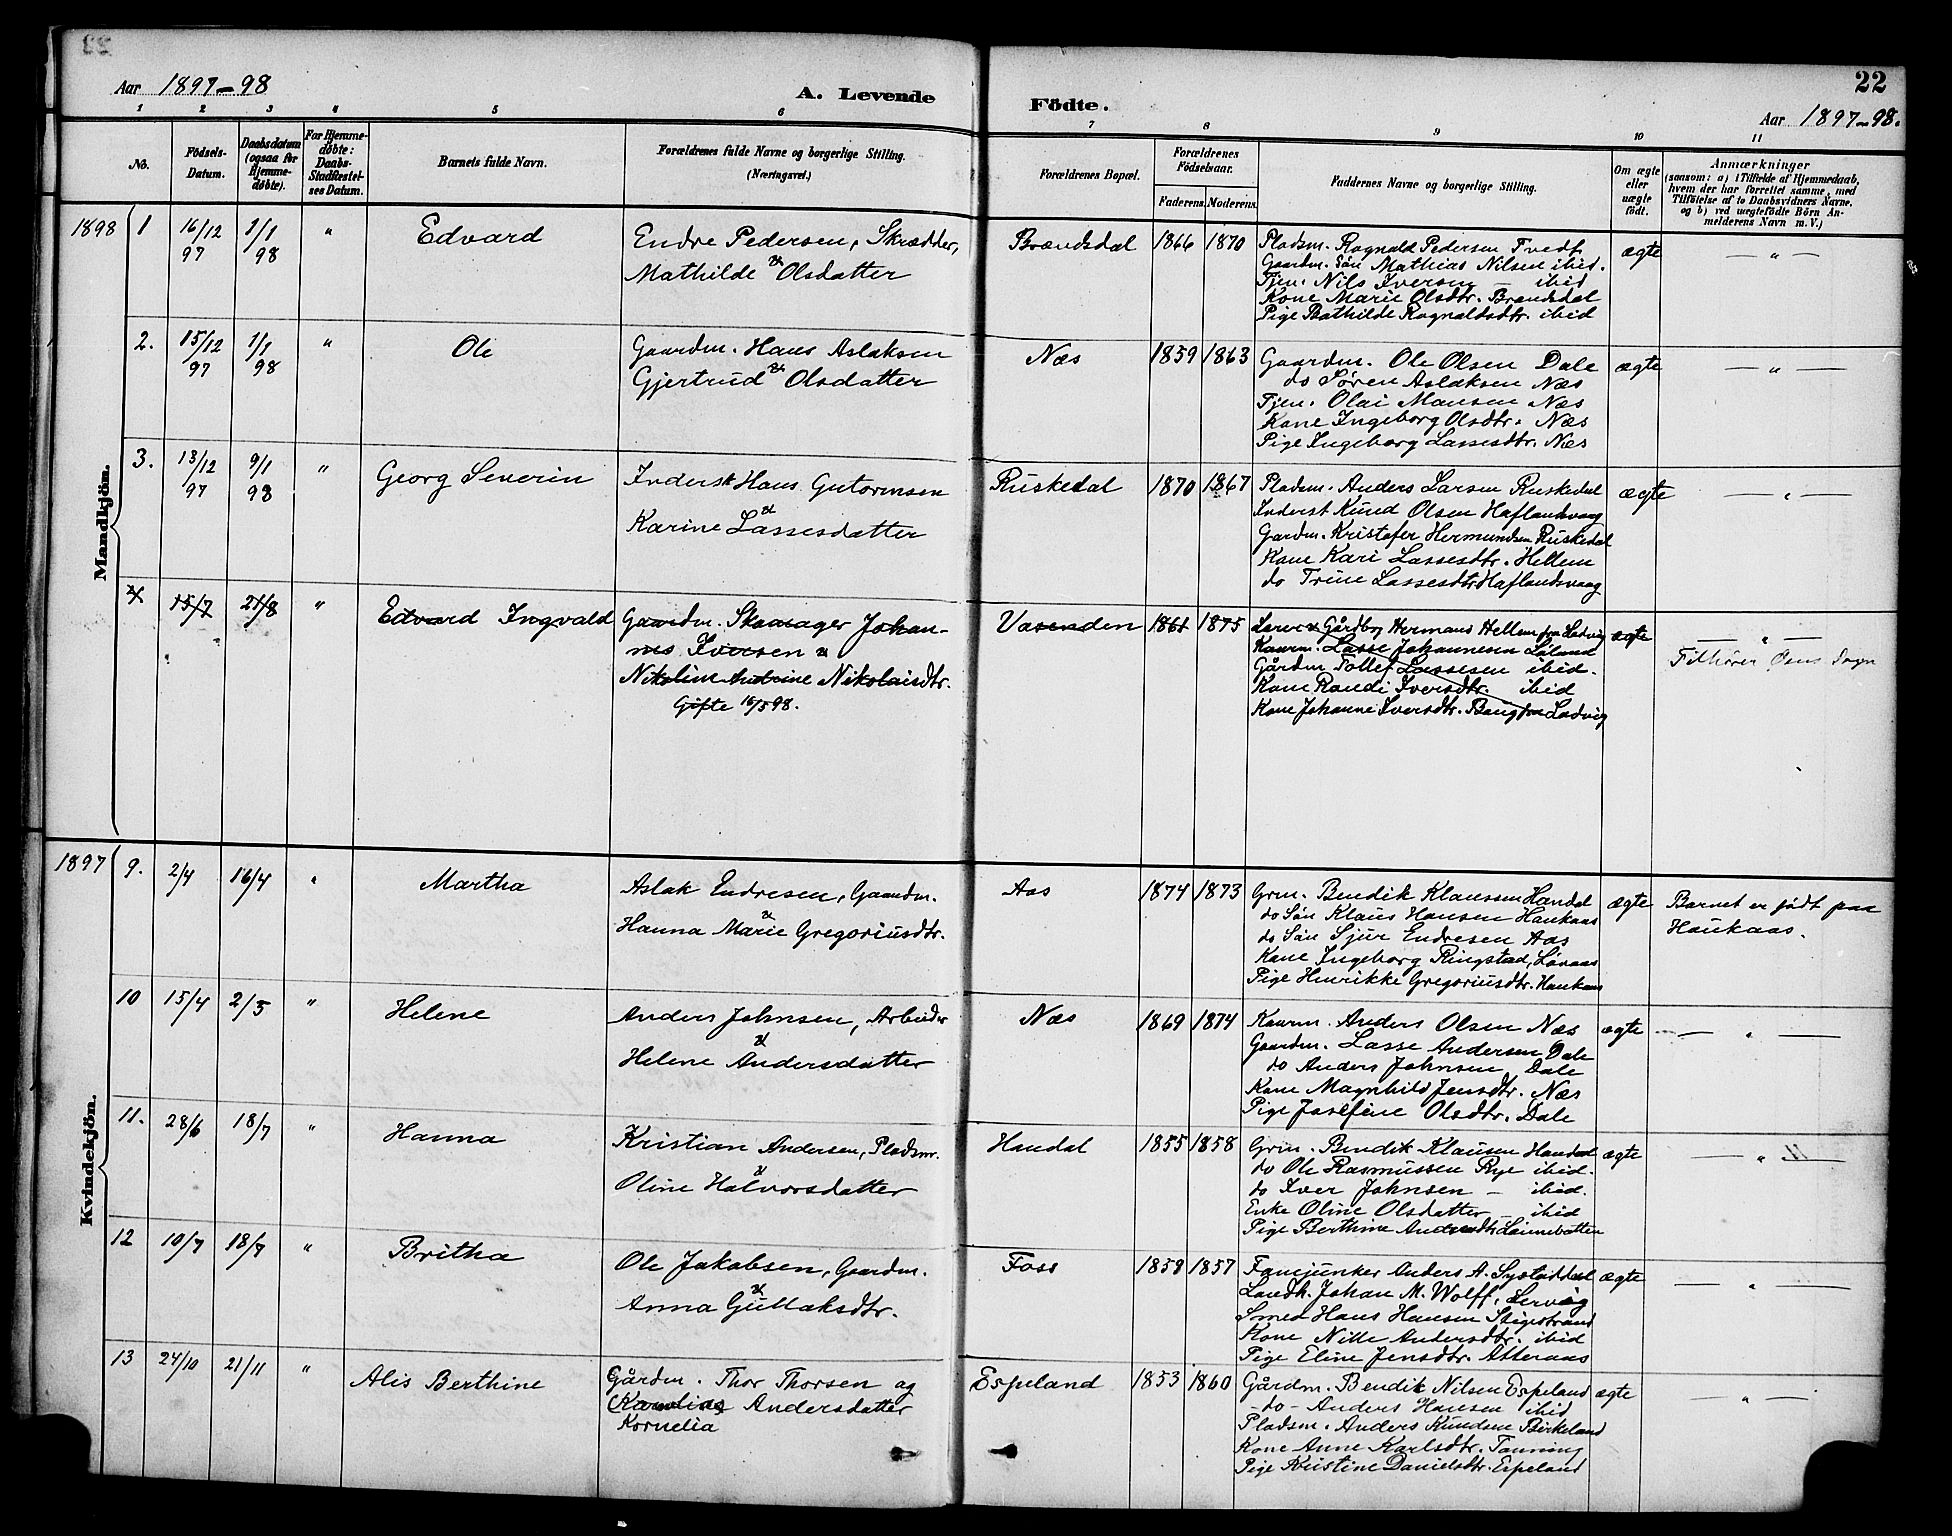 22
Aar 1897-98
A. Levende Födte.
Aar 1897-98.
1 2 3 4 5 6 7 8 9 10 11
No.
Födsels-Datum.
Daabsdatum (ogsaa for Hjemme-döbte).
For Hjemme-döbte: Daabs-Stadfæstel-ses Datum.
Barnets fulde Navn.
Forældrenes fulde Navne og borgerlige Stilling. (Næringsvei.)
Forældrenes Bopæl.
Forældrenes Födselsaar.
Faderens. Moderens.
Faddernes Navne og borgerlige Stilling.
Om ægte eller uægte födt.
Anmærkninger
(saasom: a) i Tilfælde af Hjemmedaab,
hvem der har forrettet samme, med
Tilföielse af to Daabsvidners Navne,
og b) ved uægtefödte Börn An-
melderens Navn m.V.)
Mandkjön.
1898 1 16/12 97 1/1 98 " Edvard
Endre Pedersen, Skrædder,
& Mathilde Olsdatter
Brændsdal 1866 1870
Pladsm. Ragnald Pedersen Tvedt
Gaardm. Sön Mathias Nilsen ibid.
Tjen. Nils Iversen — ibid
Kone Marie Olsdtr. Brandsdal
Pige Bathilde Ragnaldsdtr. ibid
ægte — " —
2. 15/12 97 1/1 98 " Ole
Gaardm. Hans Aslaksen
& Gjertrud Olsdatter
Næs 1859 1863
Gaardm. Ole Olsen Dale
do Sören Aslaksen Næs
Tjen. Olai Monsen Næs
Kone Ingeborg Olsdtr. Næs
Pige Ingeborg Lassesdtr. Næs
ægte — " —
3. 13/12 97 9/1 98 " Georg Severin
Inderst Hans Gutormsen
& Karine Lassesdatter
Ruskedal 1870 1867
Pladsm. Anders Larsen Ruskedal
Inderst Knud Olsen Haflandsvaag
Gardm. Kristofer Hermundsen Ruskedal
Kone Kari Lassesdtr. Hellem
do Trine Lassesdtr Haflandsvaag
ægte — " —
4 15/7 21/8 " Edvard Ingvald
Gaardm. Skomager Johan-
nes Iversen &
Nikoline Andrine Nikolaisdtr.
Gifte 16/5 98.
Vasenden 1861 1875
Gårdbr Hermans Hellem fra Ladvig
Kaarm. Lasse Johannesen
Gårdm Tollef Lassesen ibid.
Kone Randi Iversdtr. ibid
Kone Johanne Iversdtr. Baug fra Ladvig
ægte — " —
Tilhörer Öens Sogn
Kvindekjön.
1897 9. 2/4 16/4 " Martha
Aslak Endresen, Gaardm.
& Hanna Marie Gregoriusdtr.
Aas 1874 1873
Grm. Bendik Klausen Handal
do Sön Klaus Hansen Haukaas
do Sön Sjur Endresen Aas
Kone Ingeborg Ringstad, Lövaas
Pige Henrikke Gregoriusdtr. Haukaas
ægte
Barnet er födt paa
Haukaas.
10 15/4 2/5 " Helene
Anders Johnsen, Arbeider
& Helene Andersdatter
Næs 1869 1874
Kaarm. Anders Olsen Næs
Gaardm. Lasse Andersen Dale
do Anders Johnsen Dale
Kone Magnhild Jensdtr. Næs
Pige Josefine Olsdtr. Dale
ægte — " —
11. 28/6 18/7 " Hanna
Kristian Andersen, Pladsm.
& Oline Halvorsdatter
Handal 1855 1858
Grm. Bendik Klausen Handal
do Ole Rasmussen Rye ibid.
do Iver Johnsen — ibid.
Enke Oline Olsdatter — ibid
Pige Berthine Andersdtr Lönnebotten
ægte — " —
12 10/7 18/7 " Britha
Ole Jakobsen, Gaardm.
& Anna Gullaksdtr.
Foss 1859 1857
Fanejunker Anders A. Systaddal
Landh. Johan M. Wolff, Lervig
Smed Hans Hansen Stigestrand
Kone Nille Andersdtr. ibid
Pige Eline Jensdtr. Atteraas
ægte — " —
13 24/10 21/11 " Alis Berthine
Gårdm. Thor Thorsen og
Karoline Andersdatter
Kornelia
Espeland 1853 1860
Gårdm. Bendik Nilsen Espeland
-do- Anders Hansen ibid
Pladsm. Anders Knudsen Birkeland
Kone Anne Karlsdtr. Tanning
Pige Kristine Danielsdtr. Espeland
ægte " —